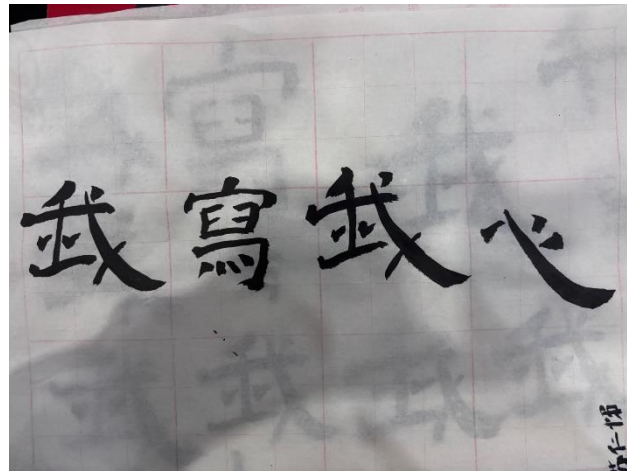 我寫我心